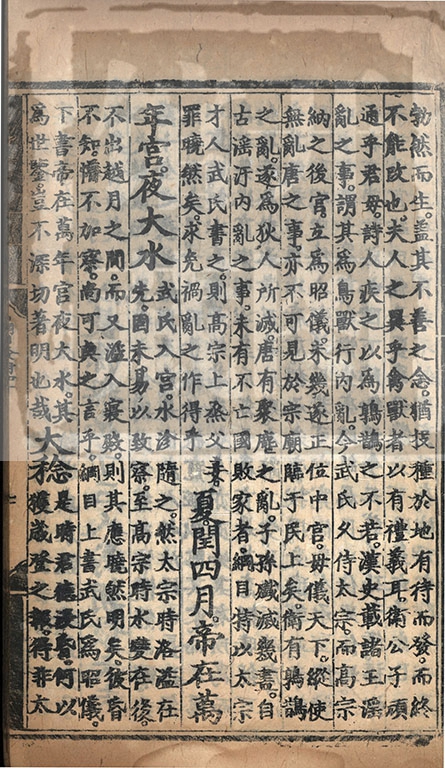 勃然而生。蓋其不善之念。猶技種於地有待而發。而終
不能改也。夫人之異乎禽獸者以有禮義耳。衛公子頑
通乎君母。詩人疾之以為鶉鵲之不若。漢史載諸王淫
亂之事。謂其為鳥獸行內亂。今武氏久侍太宗。而高宗
納之後宮。立爲昭儀。未幾遂正位中宮。母儀天下。縱使
無亂唐之事。亦不可見於宗廟臨于民上矣。衛有鶉鵲
之亂。遂為狄人所滅。唐有聚麀之亂。子孫殲滅幾盡。自
古淫汙內亂之事。未有不亡國敗家者。綱目特以太宗
才人武氏書之。則高宗上烝父妾
罪曉然矣。求免禍亂之作得乎
夏閏四月。帝在萬
年宮。夜大水
武氏入宮。水沴隨之。然太宗時洛溢在
先。固未易以致察至高宗時水變在後。
不出越月之間。而又溢入寢殿。則其應曉然明矣。彼昏
不知懵不加察。尚可與之言乎。綱目上書武氏爲昭儀。
下書帝在萬年宮夜大水。其
為世鑒豈不深切著明也哉
大稔
是時君德浸昏。何以
才獲歲登之報。得非太